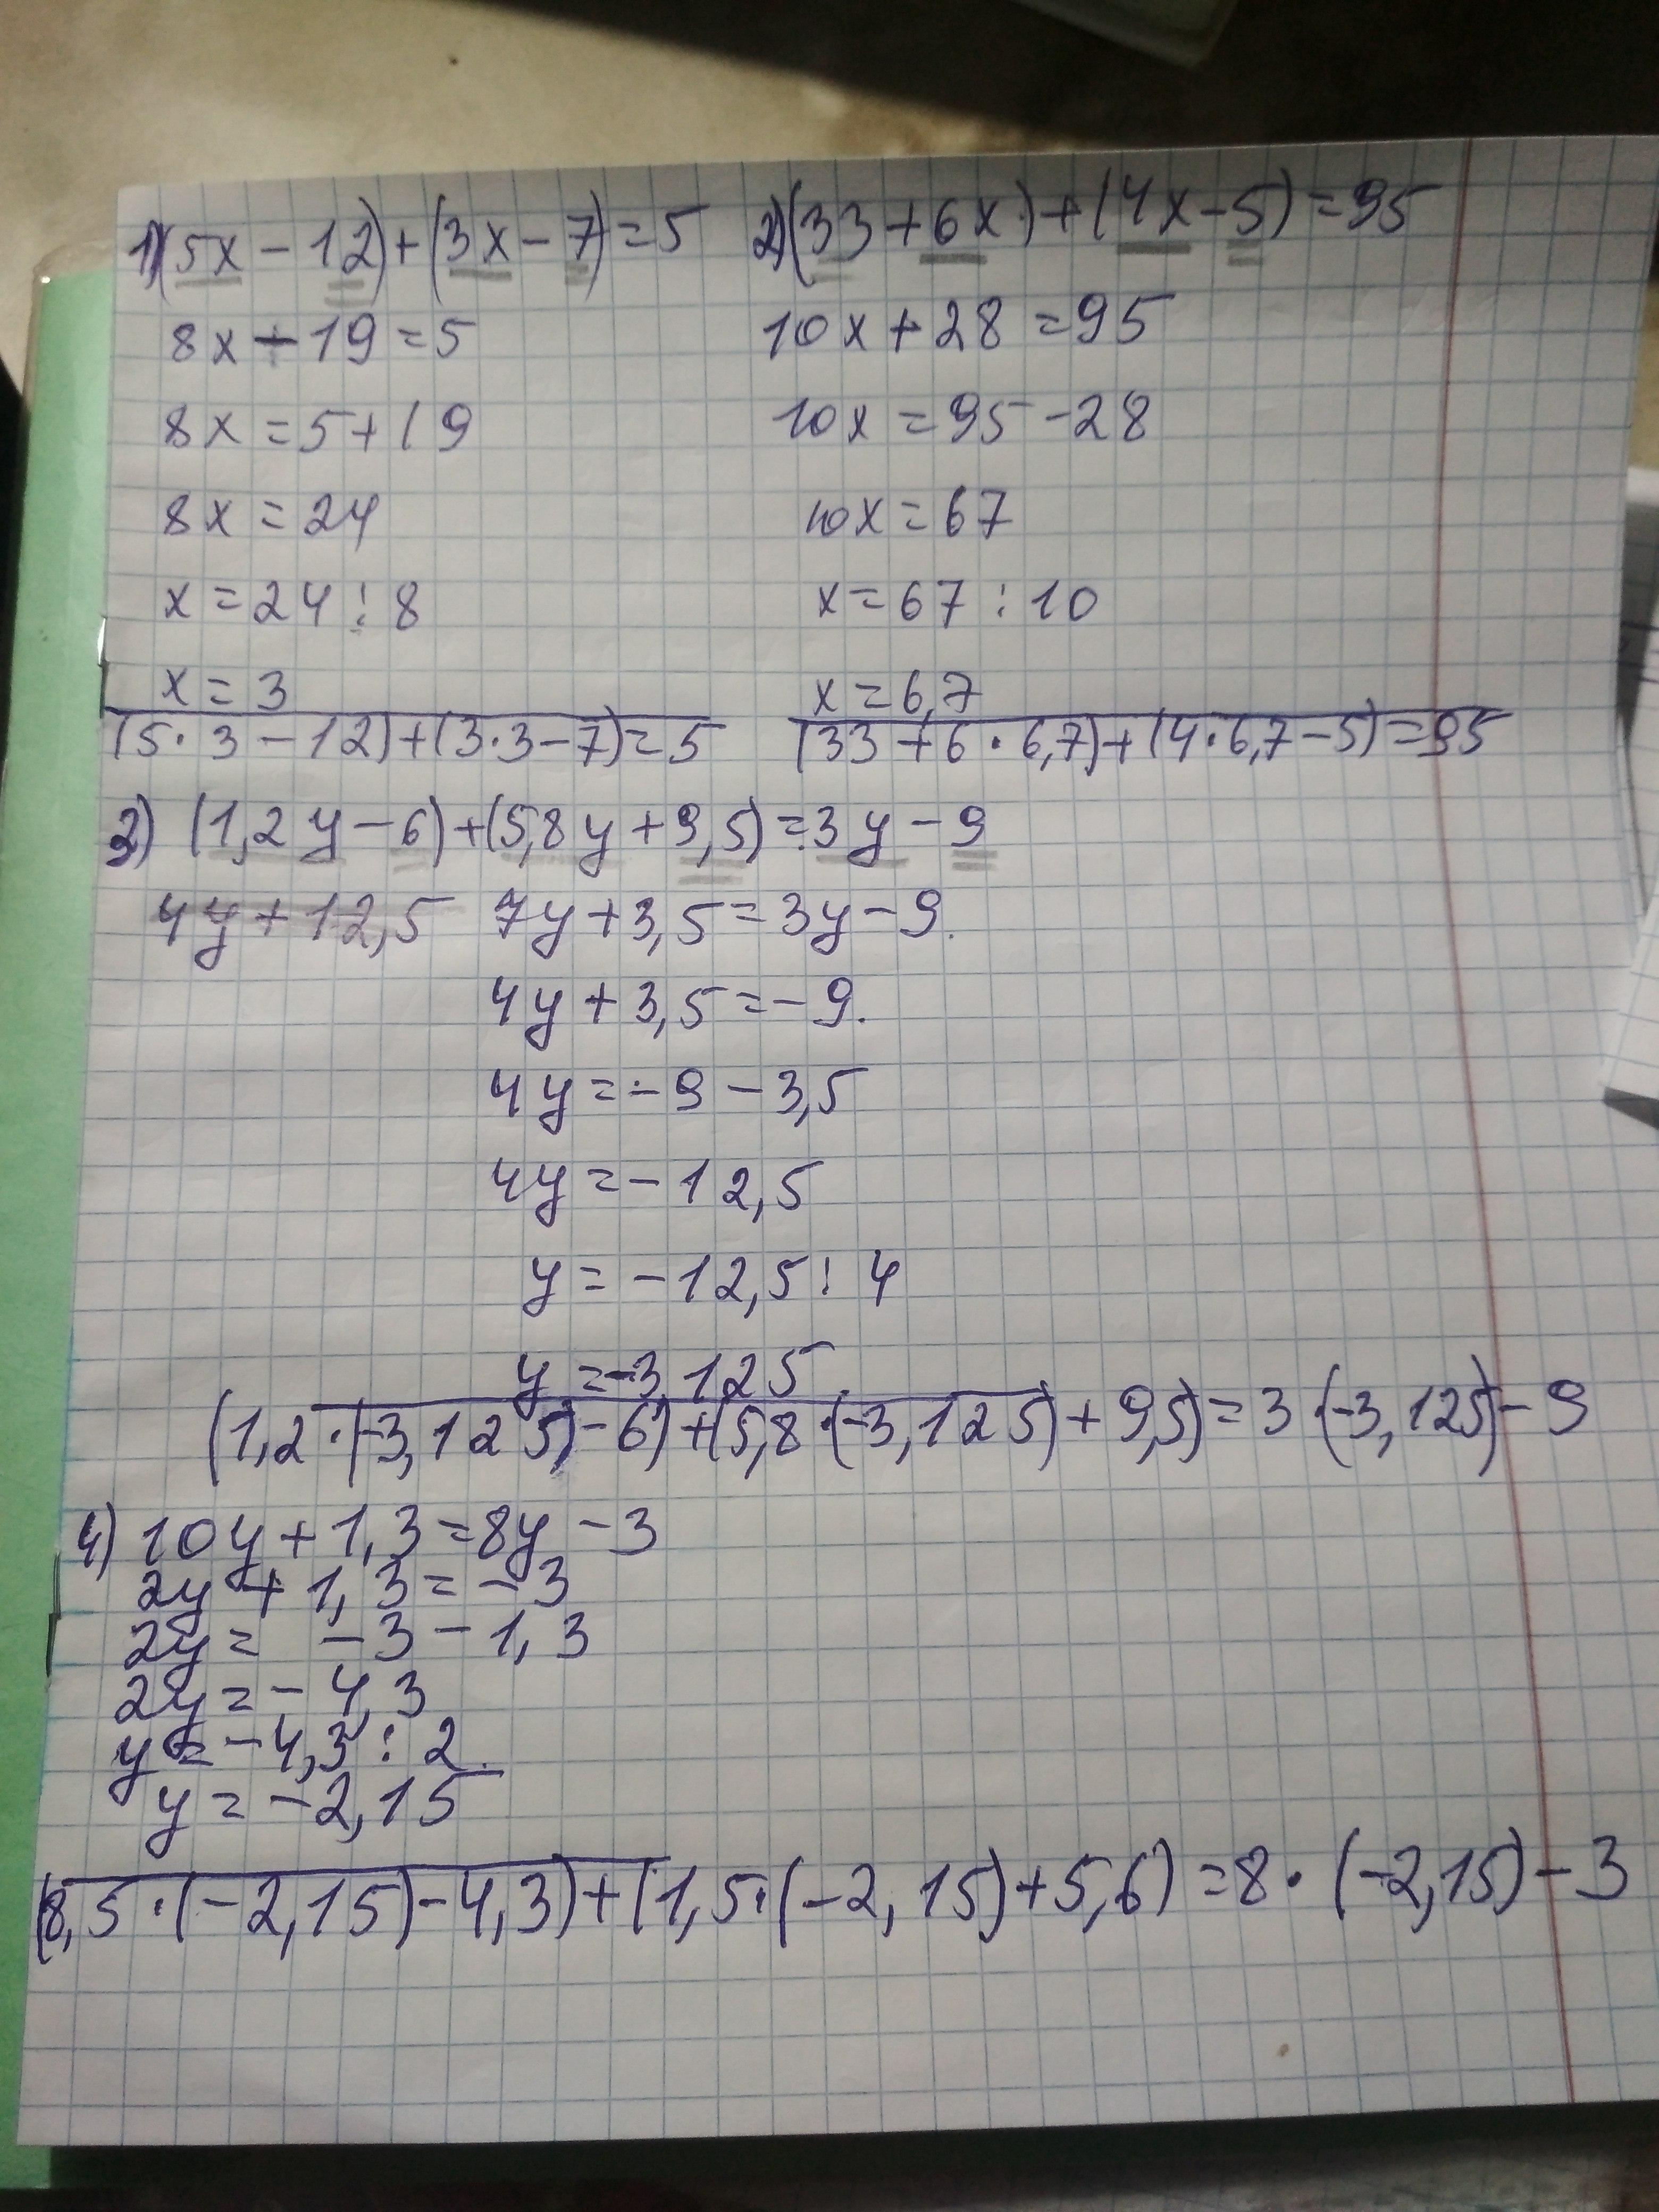 1) (5x - 12) + (3x - 7) = 5
8x - 19 = 5
8x = 5 + 19
8x = 24
x = 24 : 8
x = 3
(5 · 3 - 12) + (3 · 3 - 7) = 5
2) (33 + 6x) + (4x - 5) = 95
10x + 28 = 95
10x = 95 - 28
10x = 67
x = 67 : 10
x = 6,7
(33 + 6 · 6,7) + (4 · 6,7 - 5) = 95
3) (1,2y - 6) + (5,8y + 9,5) = 3y - 9
4y + 12,5 7y + 3,5 = 3y - 9.
4y + 3,5 = - 9.
4y = - 9 - 3,5
4y = - 12,5
y = - 12,5 : 4
y = -3,125
(1,2 · (-3,125) - 6) + (5,8 · (-3,125) + 9,5) = 3 · (-3,125) - 9
4) 10y + 1,3 = 8y - 3
2y + 1,3 = - 3
2y = - 3 - 1,3
2y = - 4,3
y = - 4,3 : 2.
y = - 2,15
(8,5 · (-2,15) - 4,3) + (1,5 · (-2,15) + 5,6) = 8 · (-2,15) - 3